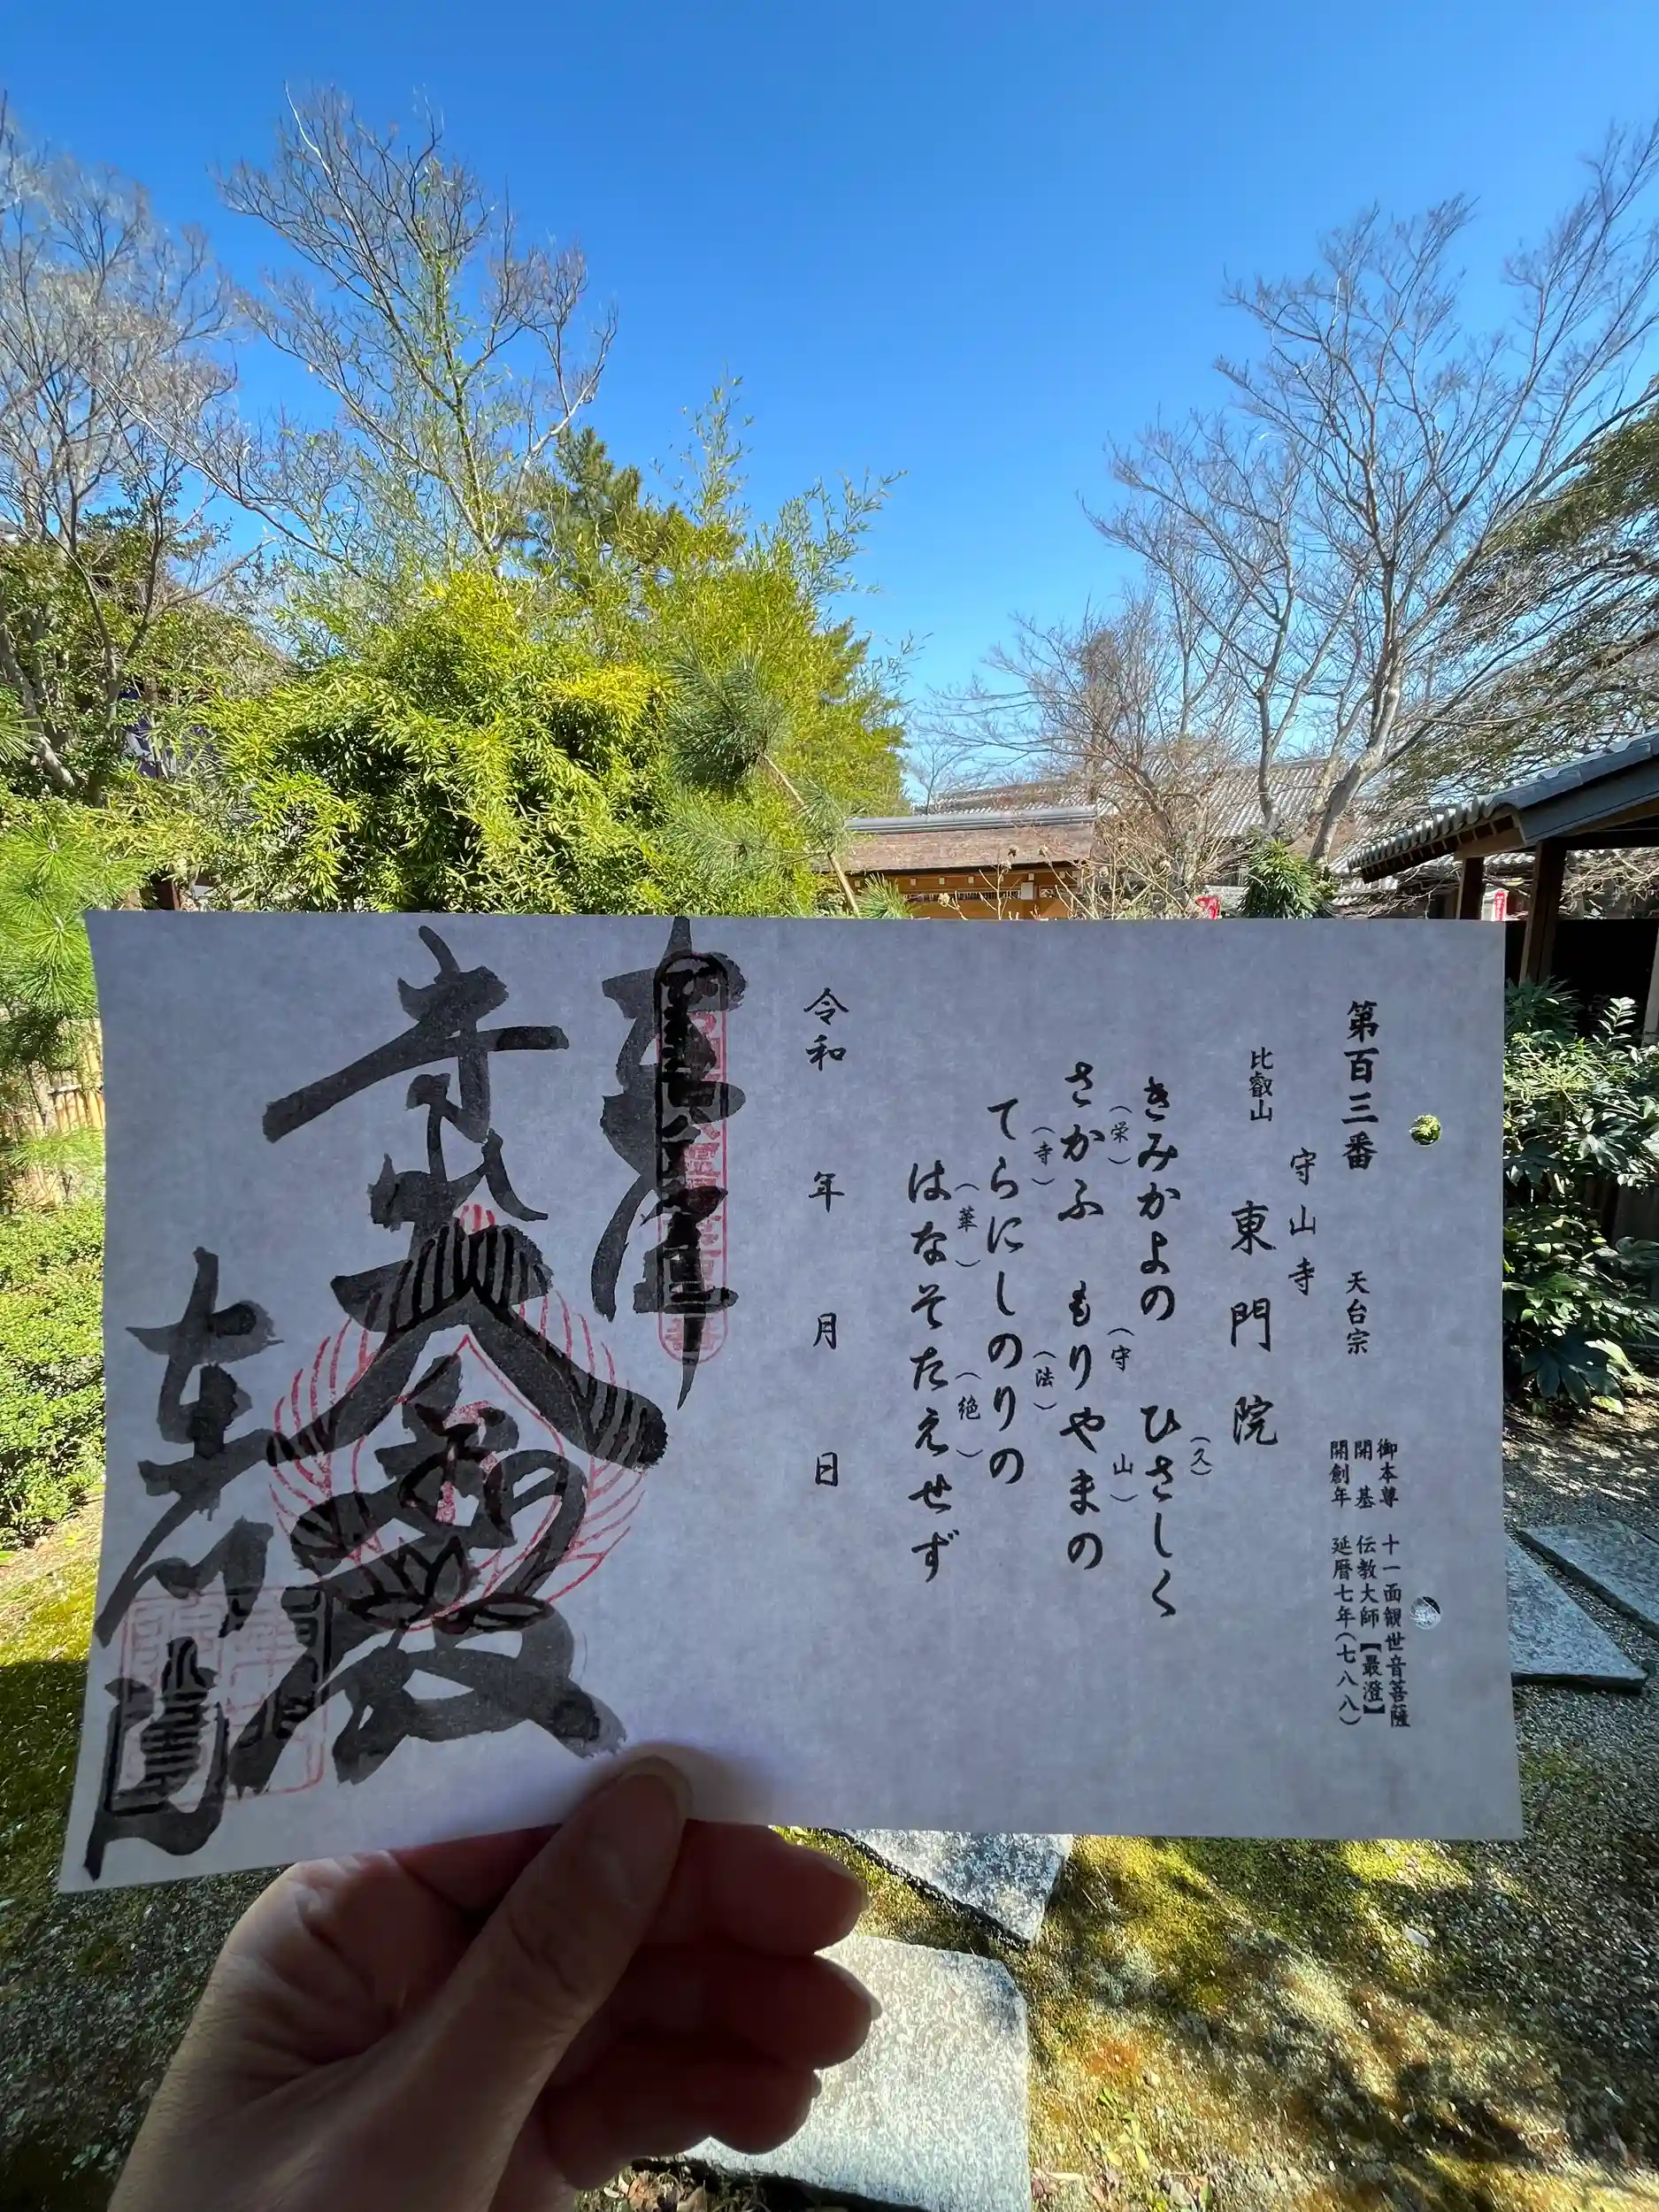 第百三番 天台宗
御本尊 十一面観世音菩薩
開基 伝教大師【最澄】
開創年 延暦七年(七八八)
守山寺
比叡山 東門院
きみかよの ひさしく(久)
さかふ(栄) もりやまの(守山)
てらにしのりの(寺)(法)
はなそたえせず(華)(絶)
令和 年 月 日
奉拝
大悲殿
東門院